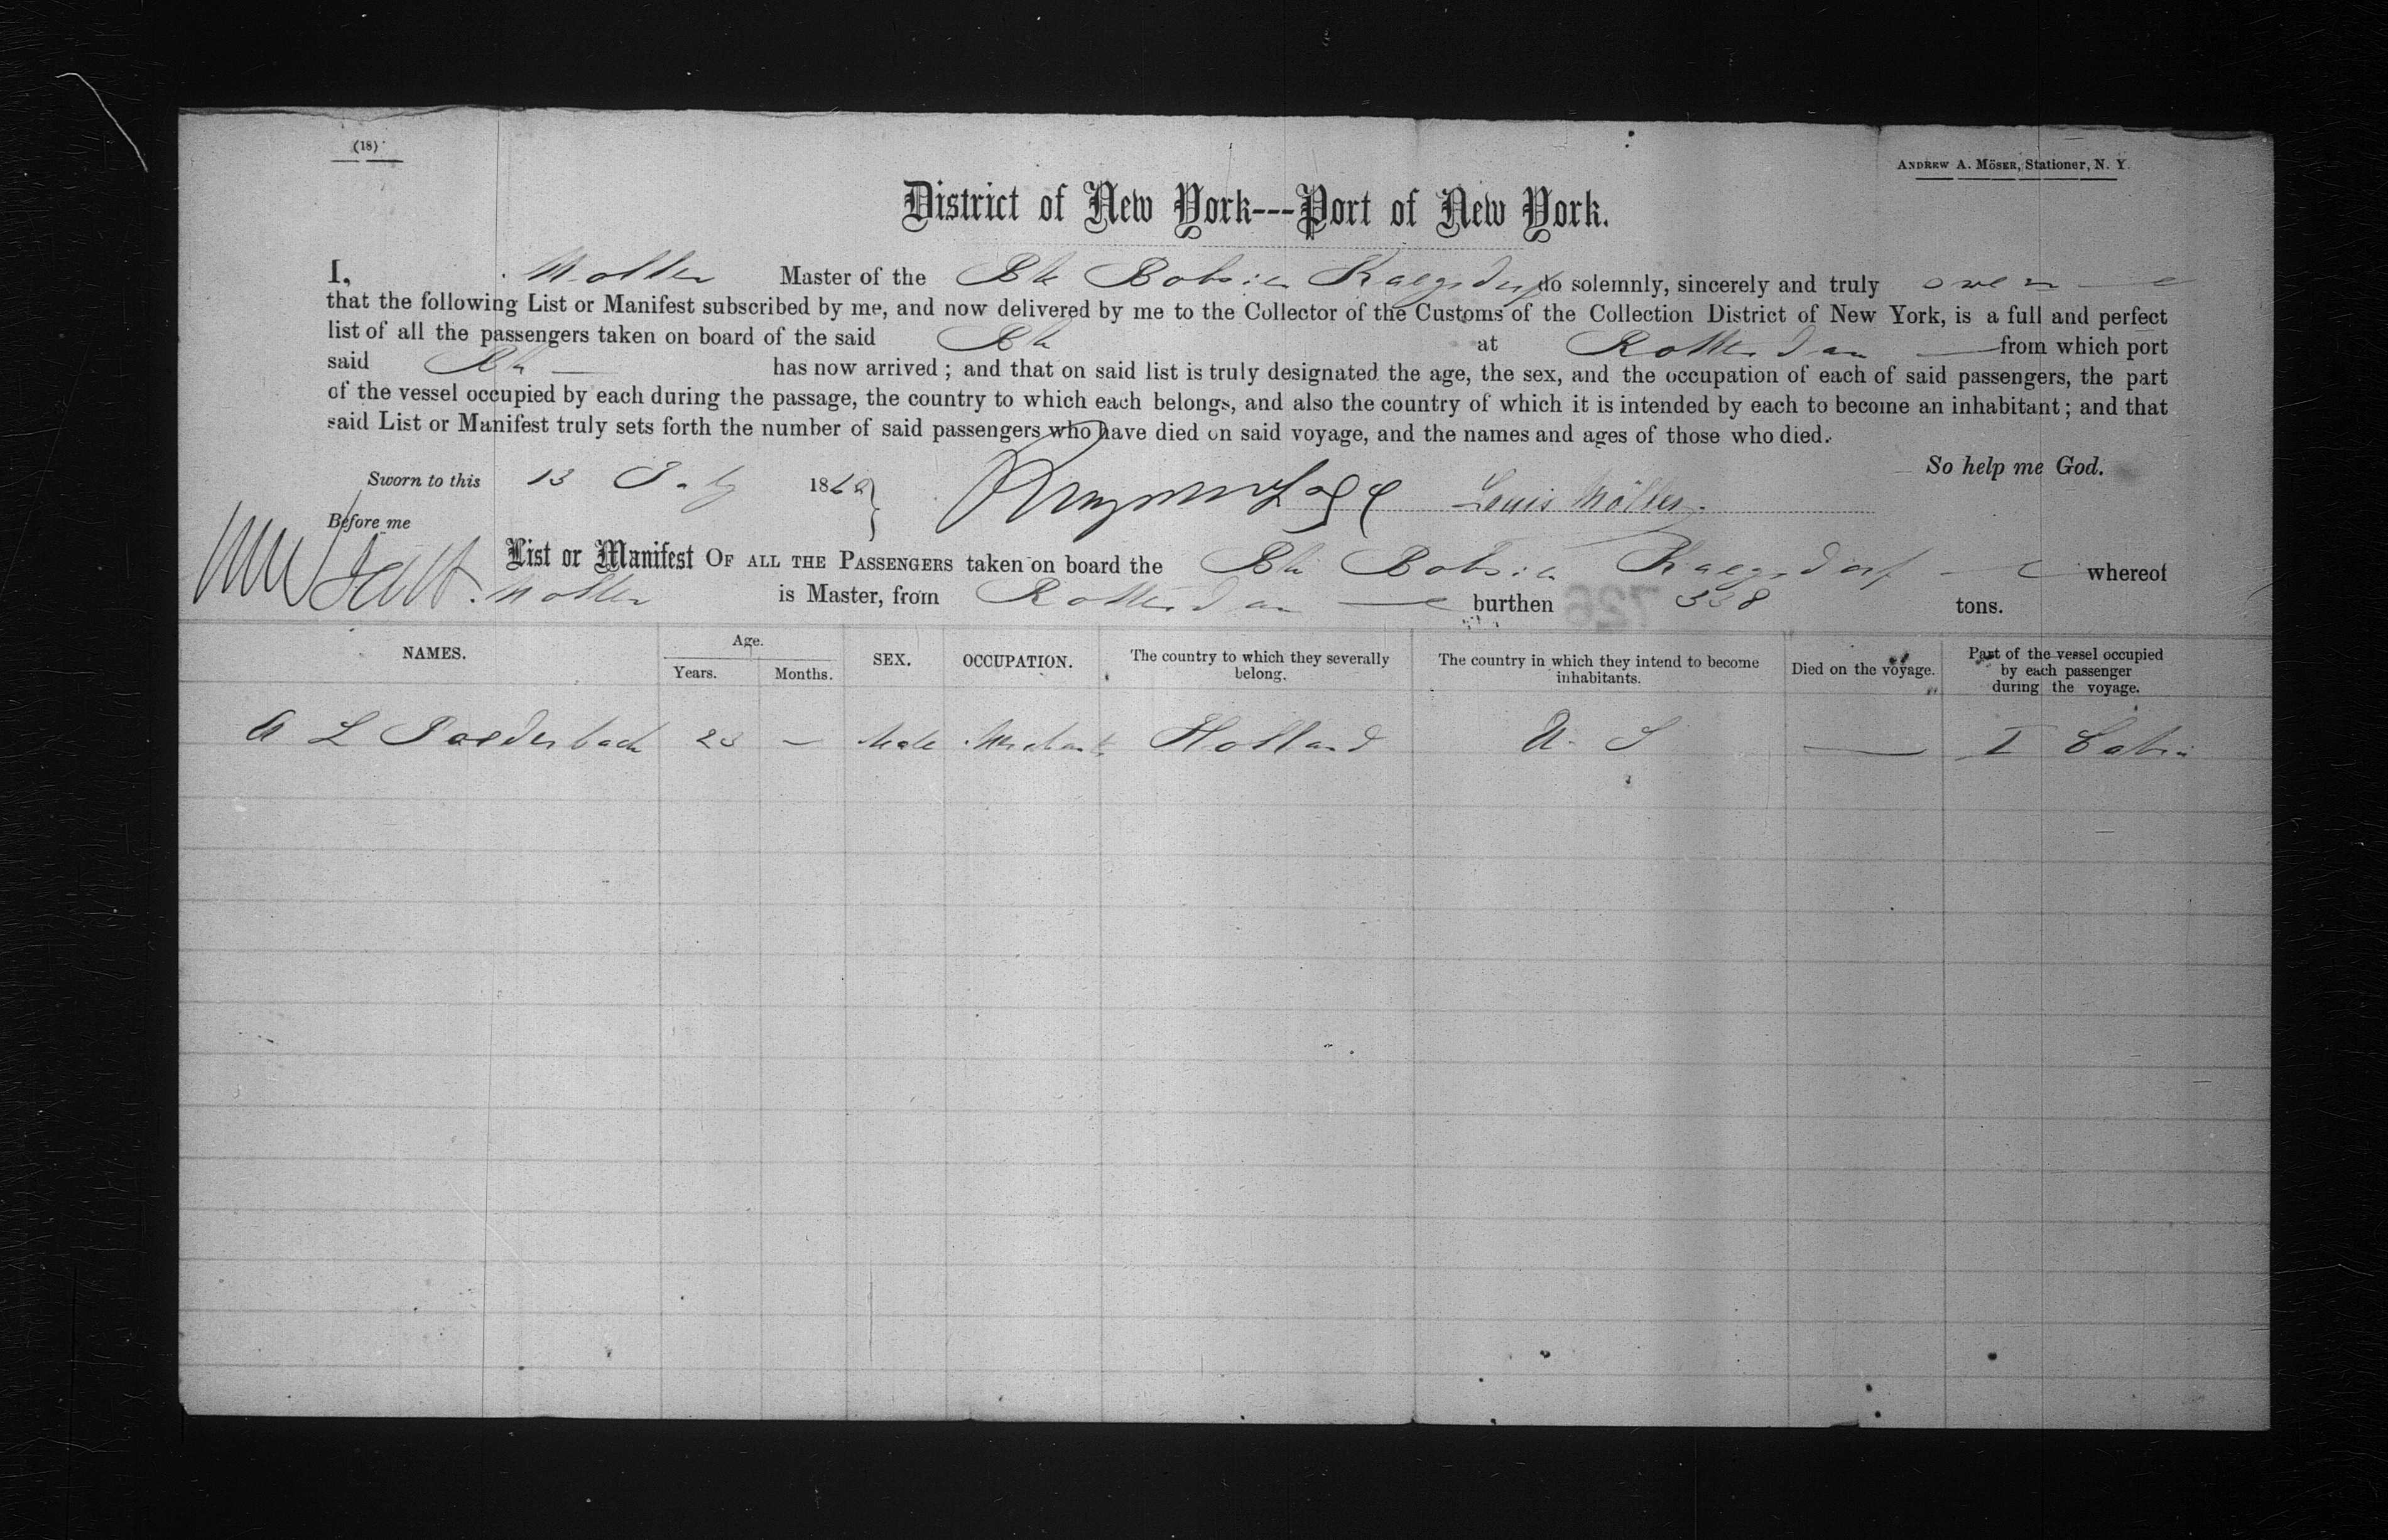 (18)
ANDREW A. MÖSER, Stationer, N. Y.
District of New York---Port of New York.
I, Moller Master of the Bk do solemnly, sincerely and truly swear
that the following List or Manifest subscribed by me, and now delivered by me to the Collector of the Customs of the Collection District of New York, is a full and perfect
list of all the passengers taken on board of the said Bk at Rotterdam from which port
said Bk has now arrived; and that on said list is truly designated the age, the sex, and the occupation of each of said passengers, the part
of the vessel occupied by each during the passage, the country to which each belongs, and also the country of which it is intended by each to become an inhabitant; and that
said List or Manifest truly sets forth the number of said passengers who have died on said voyage, and the names and ages of those who died.
So help me God.
Sworn to this 13 July 186
Louis Möller.
Before me
List or Manifest OF ALL THE PASSENGERS taken on board the Bk whereof
Moller is Master, from Rotterdam burthen 338 tons.
NAMES. Age. Years. Months. SEX. OCCUPATION. The country to which they severally belong. The country in which they intend to become inhabitants. Died on the voyage. Part of the vessel occupied by each passenger during the voyage.
A L 23 — Male Merchant Holland U. S — I Cabin